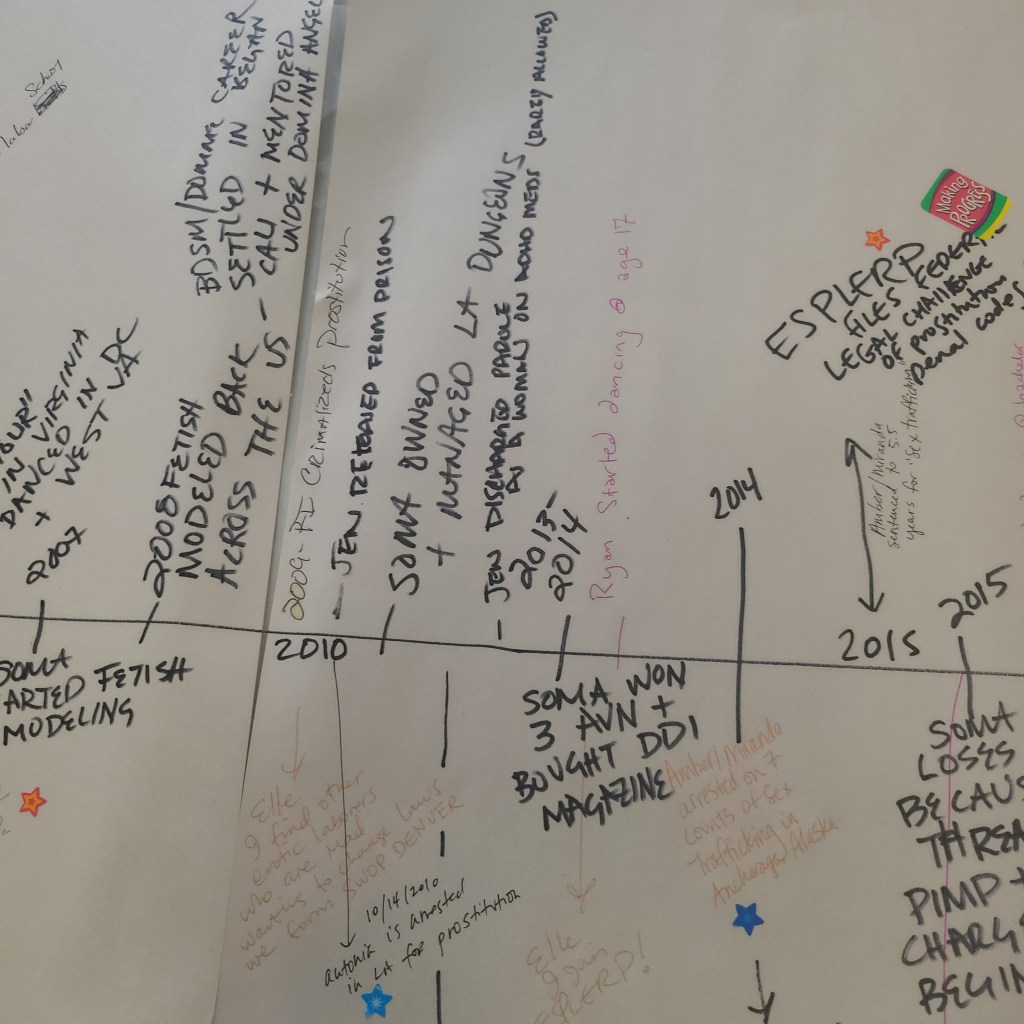 School
BDSM/DOMME CAREER
BEGAN
SETTLED IN
CALI + MENTORED
UNDER DOMINA ANGEL
IN
DANCED VIRGINIA
+ WEST VA
IN DC
2007
2008 FETISH
MODELED BACK
ACROSS THE US -
2009 - RI Crimalizeds prostitution
JEN RETURNED FROM PRISON
SOMA OWNED
+ MANAGED LA DUNGEONS
JEN DISCHARGED PAROLE
AS A WOMAN ON MEDS (RARELY ALLOWED)
2013-
2014
Ryan. Started dancing @ age 17
2014
Making
PROGRESS
ESPLERP
FILES FEDER...
LEGAL CHALLENGE
OF prostitution
penal codes
Amber/Miranda
sentenced to 5.5
years for "Sex trafficking"
@ bachelor
2010
2015
2015
SOMA
ARTED FETISH
MODELING
Elle
I find other
erotic laborers
who are mad
wanting to change laws
we form SWOP DENVER
10/14/2010
antonia is arrested
in LA for prostitution
SOMA WON
3 AVN +
BOUGHT DDI
MAGAZINE
Elle
I join
ESPLERP!
Amber/Miranda
arrested on 7
counts of sex
trafficking in
Anchorage, Alaska
SOMA
LOSES
BECAUS
THREA
PIMP +
CHARG
BEGIN